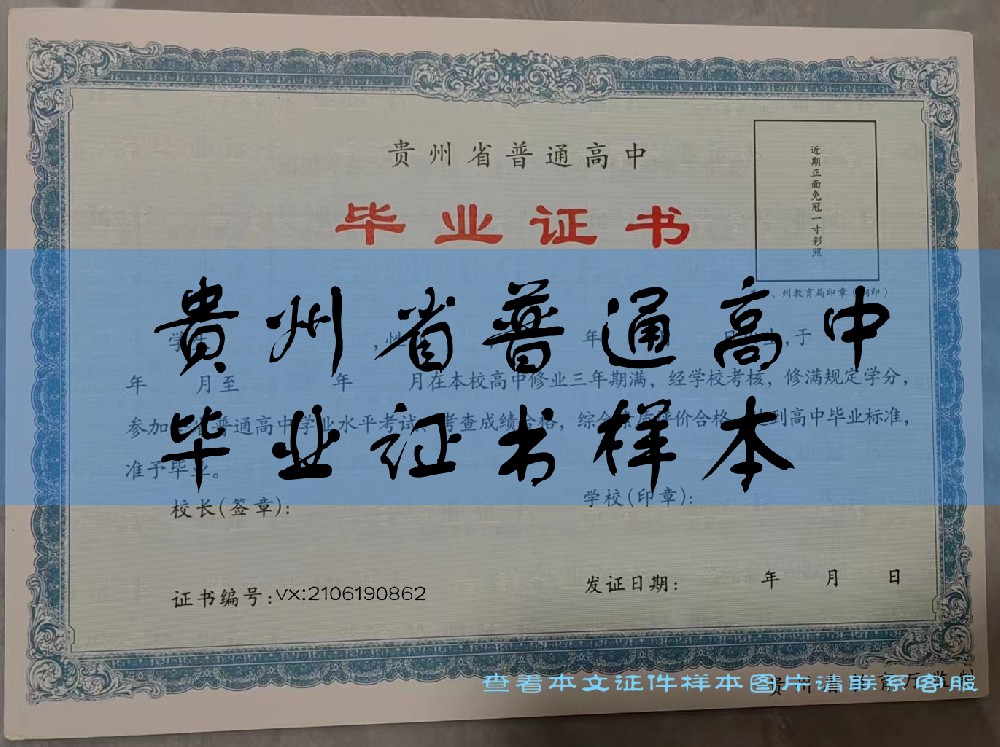 贵州省普通高中
毕业证书
近期正面免冠一寸彩照
州教育局印章
贵州省普通高中
毕业证书样本
年 月至 年 月在本校高中修业三年期满，经学校考核，修满规定学分，
参加 普通高中学业水平考试 考查成绩合格，综合 评价合格 到高中毕业标准，
准予毕业。
校长(签章)：
学校(印章)：
证书编号：vx:2106190862
发证日期： 年 月 日
查看本文证件样本图片请联系客服